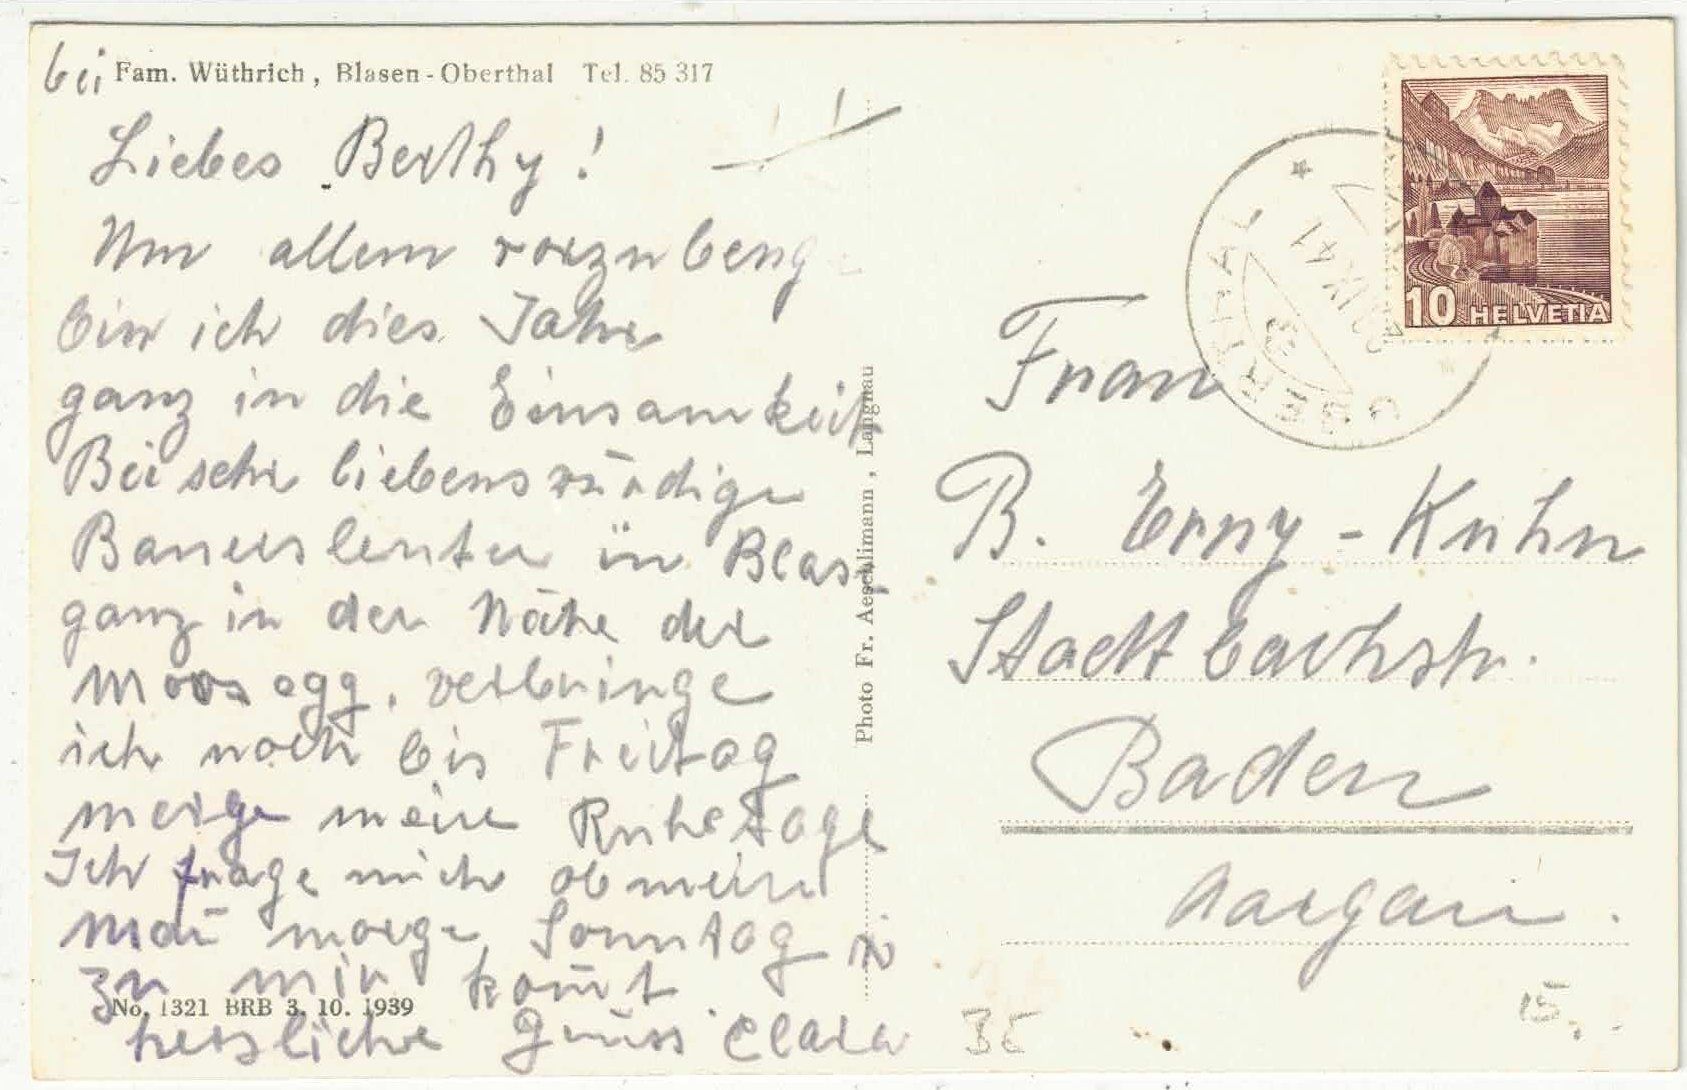 bei Fam. Wüthrich, Blasen-Oberthal Tel. 85 317
Liebes Berthy!
Um allem vorzubeug
bin ich dies Jahr
ganz in die Einsamkeit
Bei sehr liebenswürdige
Bauersleuten in Blas.
ganz in der Nähe der
Moosegg. verbringe
ich noch bis Freitag
meine Ruhetage
Ich frage mich ob mein
morge Sonntag
zu mir kom̄t
herzliche Grüss Clara
No. 1321 BRB 3. 10. 1939
Photo Fr. Aeschlimann, Langnau
OBERTHAL
IX 41
10 HELVETIA
Frau
B. Erny-Kuhn
Stadtbachstr.
Baden
Aargau.
35
15.-